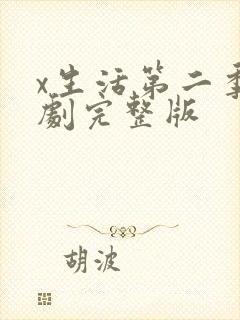 x生活第二季
劇完整版
胡波